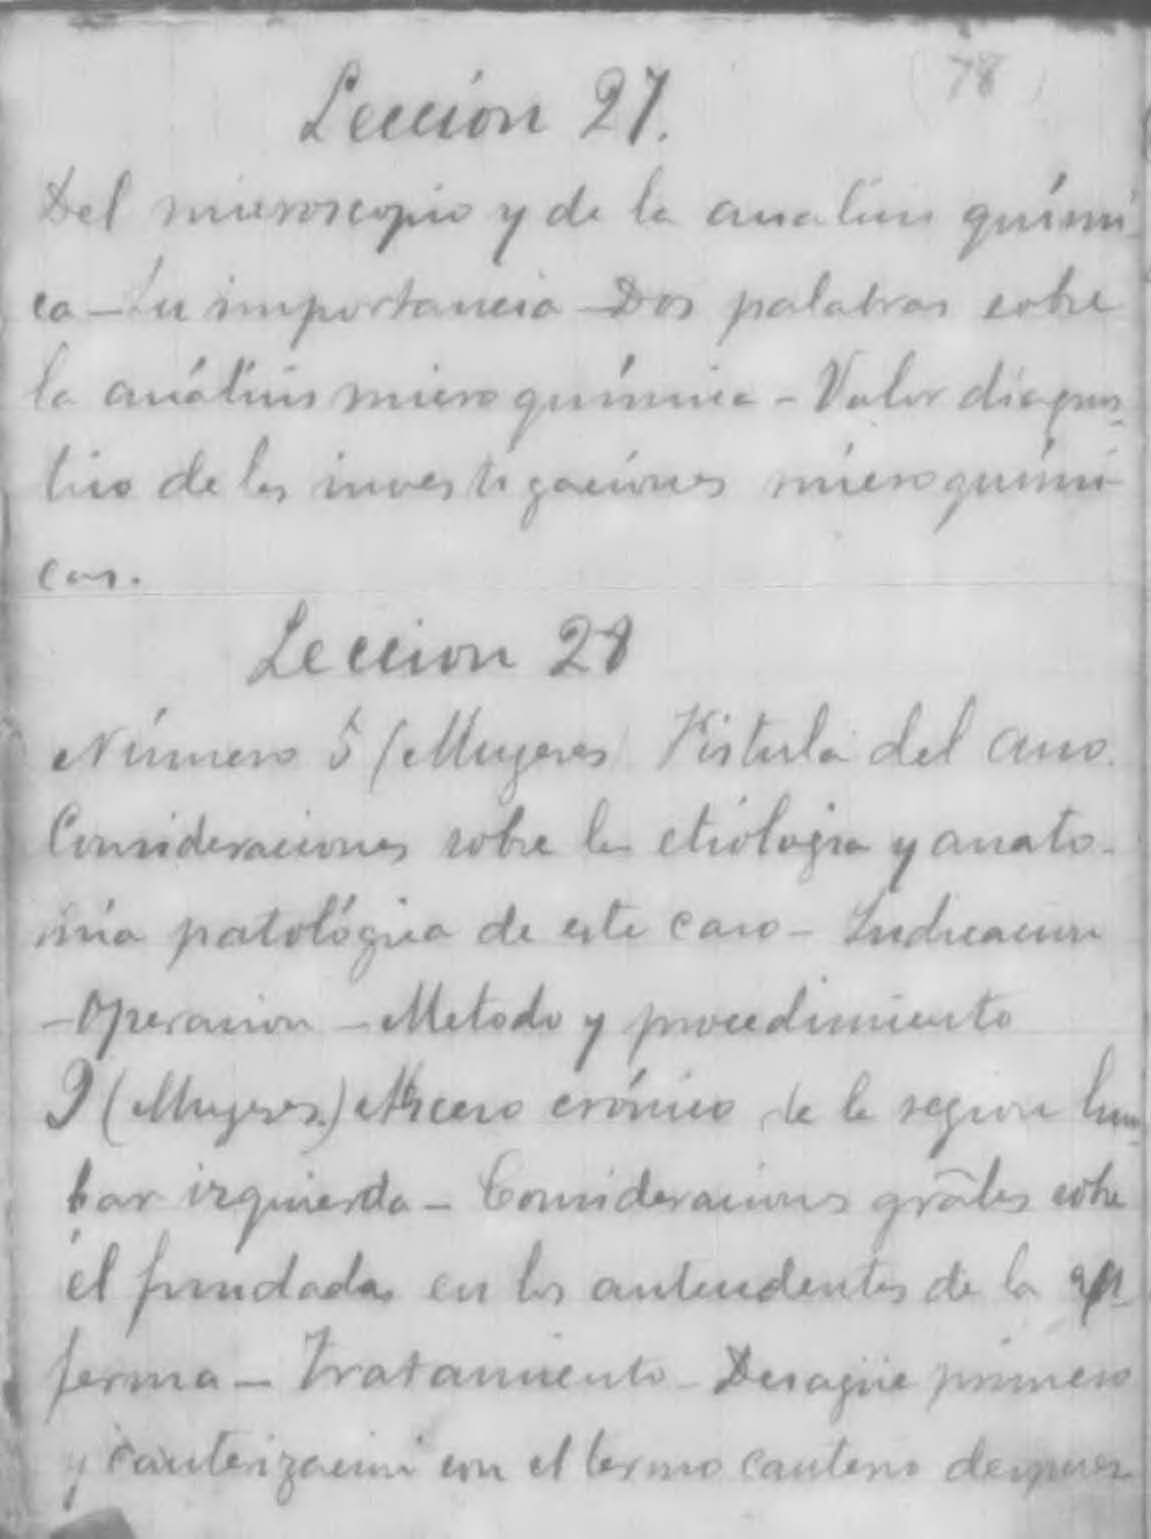 (78)
Leccion 27.
Del microscopio y de la analisis quími-
ca - Su importancia - Dos palabras sobre
la análisis microquímica - Valor diagnos-
tico de las investigaciones microquími-
cas.
Leccion 28
Número 5 (Mujeres) Fistula del ano.
Consideraciones sobre la etiologia y anato-
mia patológica de este caso - Indicacion
- Operacion - Metodo y procedimiento
9 (Mujeres.) Absceso crónico de la region lum-
bar izquierda - Consideraciones grāles sobre
él fundadas en los antecedentes de la en-
ferma - Tratamiento - Desagüe primero
y cauterizacion con el termo cauterio despues